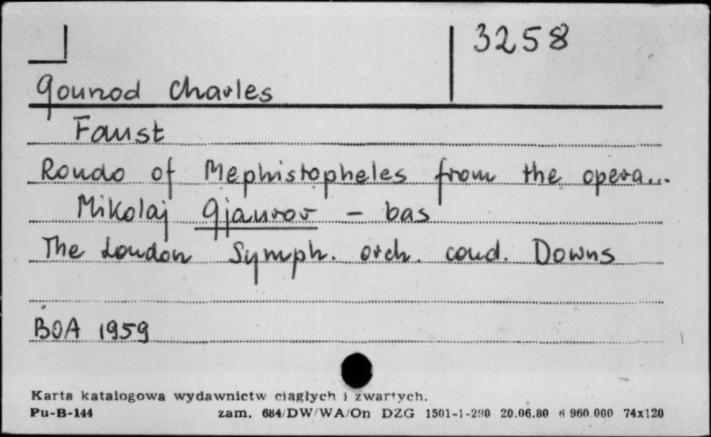 3258
Gounod Charles
Faust
Rondo of Mephistopheles from the opera...
Mikolaj Gjaurov - bas
The London Symph. orch. cond. Downs
BOA 1959
Karta katalogowa wydawnictw ciągłych i zwartych.
Pu-B-144 zam. 684/DW/WA/On DZG 1501-1-290 20.06.80 6 960.000 74x120